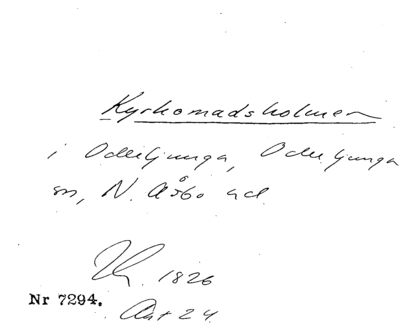 Kyrkomadsholmen
i Oderljunga, Oderljunga
sn, N. Åsbo hd.
1826
Nr 7294.
Akt 24.